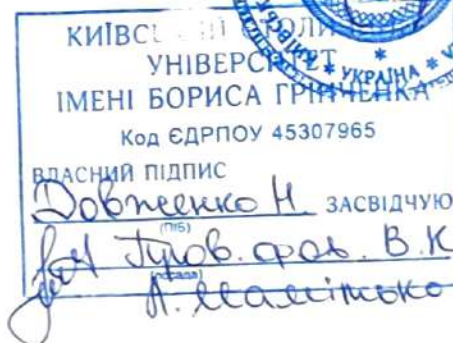 КИЇВСЬКИЙ СТОЛИ
УНІВЕРСИТЕТ
ІМЕНІ БОРИСА ГРІНЧЕНКА
* УКРАЇНА *
Код ЄДРПОУ 45307965
ВЛАСНИЙ ПІДПИС
Довженко Н. ЗАСВІДЧУЮ
(ПІБ)
Пров. фах. В.К
(посада)